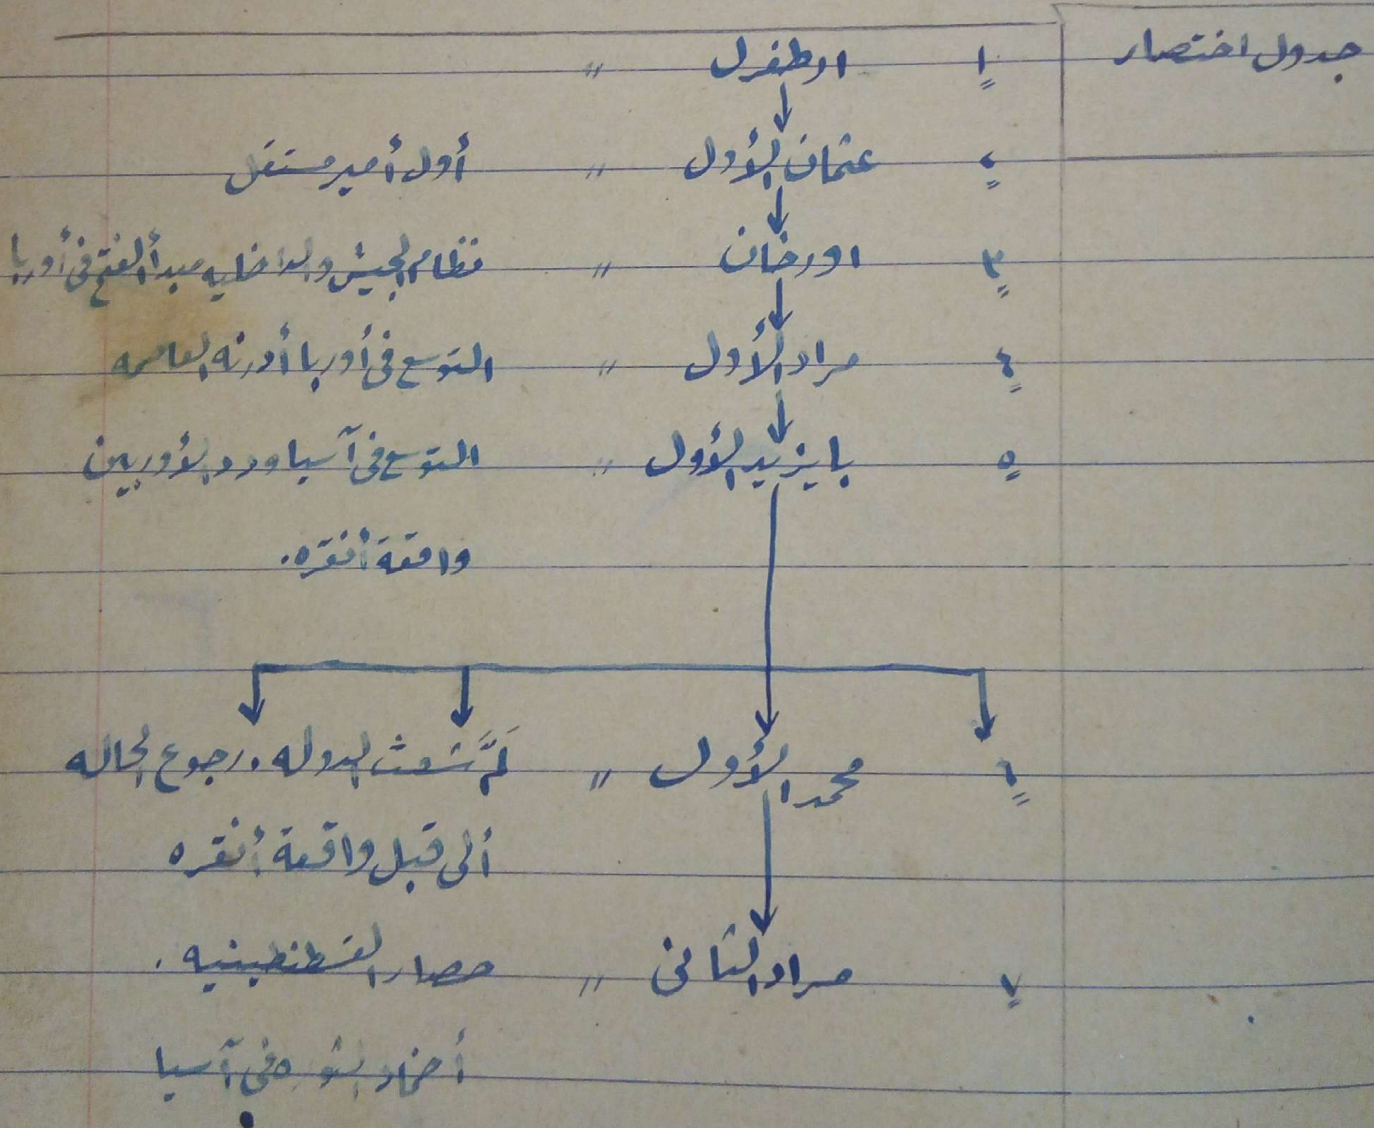 جدول اختصار
١ ارطغرل "
٢ عثمان الأول " أول أمير مستقل
٣ اورخان " نظام الجيش والداخليه مبدأ الفتح فى أوربا
٤ مراد الأول " التوسع فى أوربا أدرنه العاصمه
٥ بايزيد الأول " التوسع فى آسيا ورد الأوربيين
واقعة أنقره.
٦ محمد الأول " لَمَّ شَعث الدوله. رجوع الحاله
ألى قبل واقعة أنقره
٧ مراد الثانى " حصار القسطنطينيه.
أخماد الثوره فى آسيا